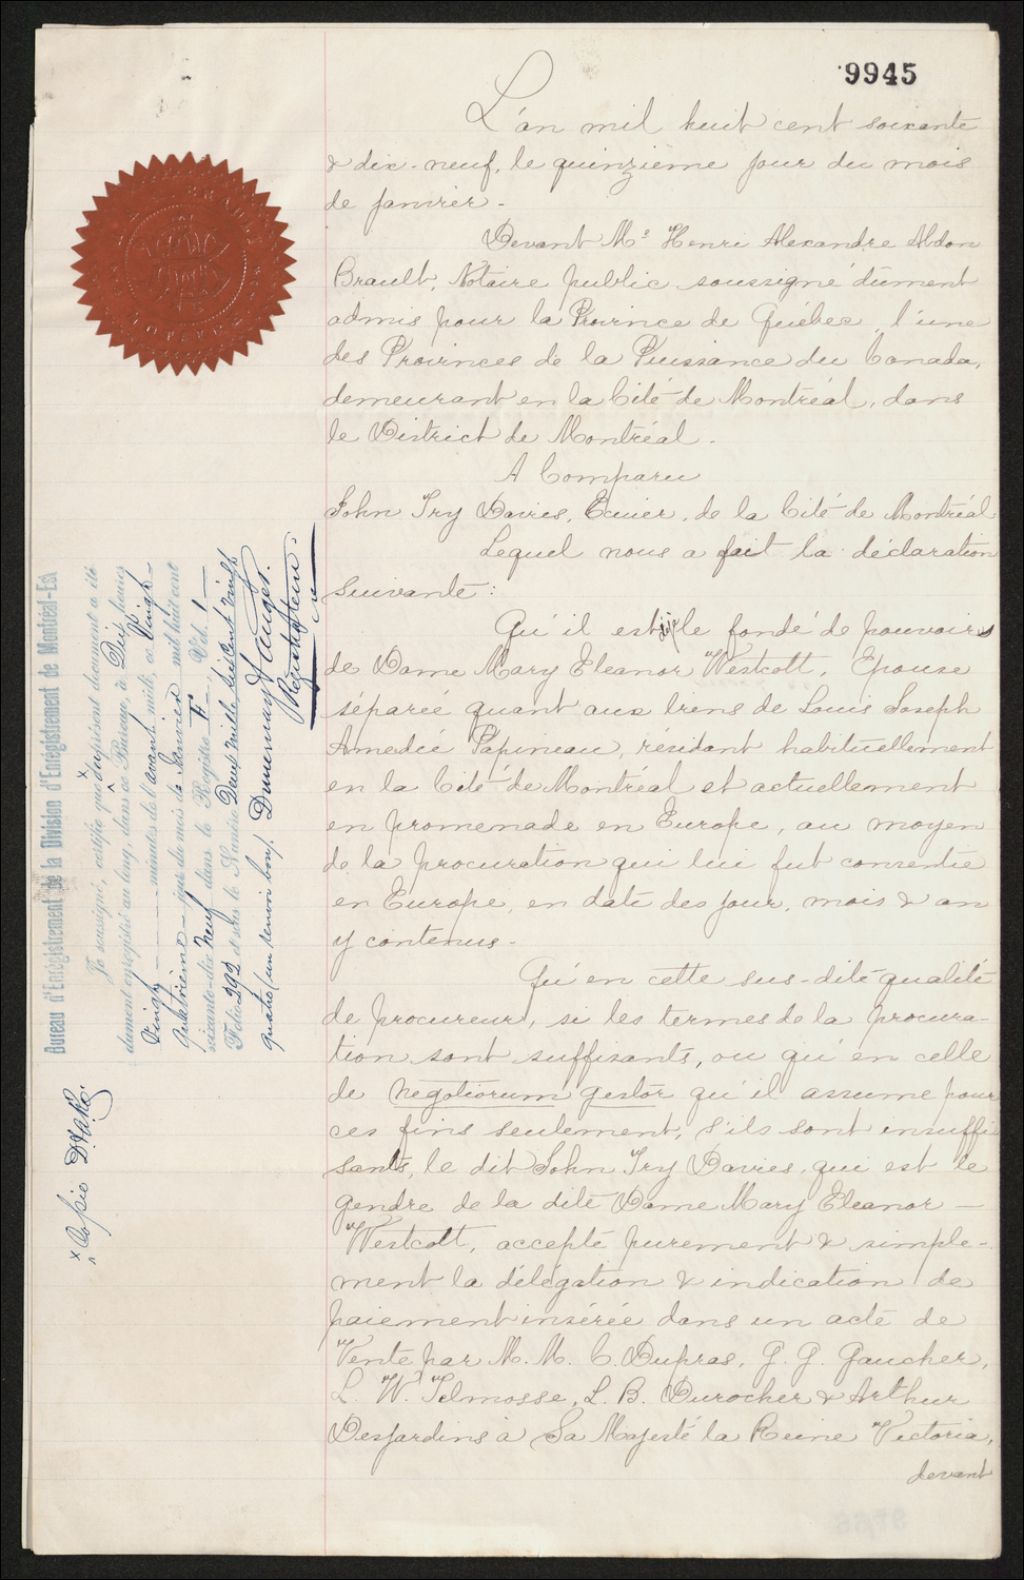 9945
L'an mil huit cent soixante
& dix-neuf, le quinzième jour du mois
de janvier.
Devant Mᵉ Henri Alexandre Abdon
Brault, Notaire public soussigné dûment
admis pour la Province de Québec, l'une
des Provinces de la Puissance du Canada,
demeurant en la Cité de Montréal, dans
le District de Montréal.
A Comparu
John Try Davies, Ecuier, de la Cité de Montréal
Lequel nous a fait la déclaration
suivante:
Qu'il est le fondé de pouvoirs
de Dame Mary Eleanor Westcott, Epouse
séparée quant aux biens de Louis Joseph
Amedée Papineau, résidant habituellement
en la Cité de Montréal et actuellement
en promenade en Europe, au moyen
de la procuration qui lui fut consentie
en Europe, en date des jour, mois & an
y contenus.
Qu'en cette sus-dite qualité
de procureur, si les termes de la procura-
tion sont suffisants, ou qu'en celle
de negotiorum gestor qu'il assume pour
ces fins seulement, s'ils sont insuffi
sants, le dit John Try Davies, qui est le
gendre de la dite Dame Mary Eleanor —
Westcott, accepte purement & simple-
ment la délégation & indication de
paiement insérée dans un acte de
Vente par M. M. C. Dupras, G. G. Gaucher,
L. W. Telmosse, L. B. Durocher & Arthur
Desjardins à Sa Majesté la Reine Victoria,
devant
Bureau d'Enrégistrement de la Division d'Enrégistrement de Montréal-Est
Je soussigné, certifie que du présent document a été
dument enregistré au long, dans ce Bureau, à Dix heures
Vingt — minutes de l'avant midi, ce Vingt-
quatrième — jour du mois de Janvier mil huit cent
soixante-dix Neuf dans le Registre E —, Vol. 1 —
Folio 292 et sous le Numéro Deux mille huit cent vingt
quatre (un renvoi bon)
Registrateur
x Copie